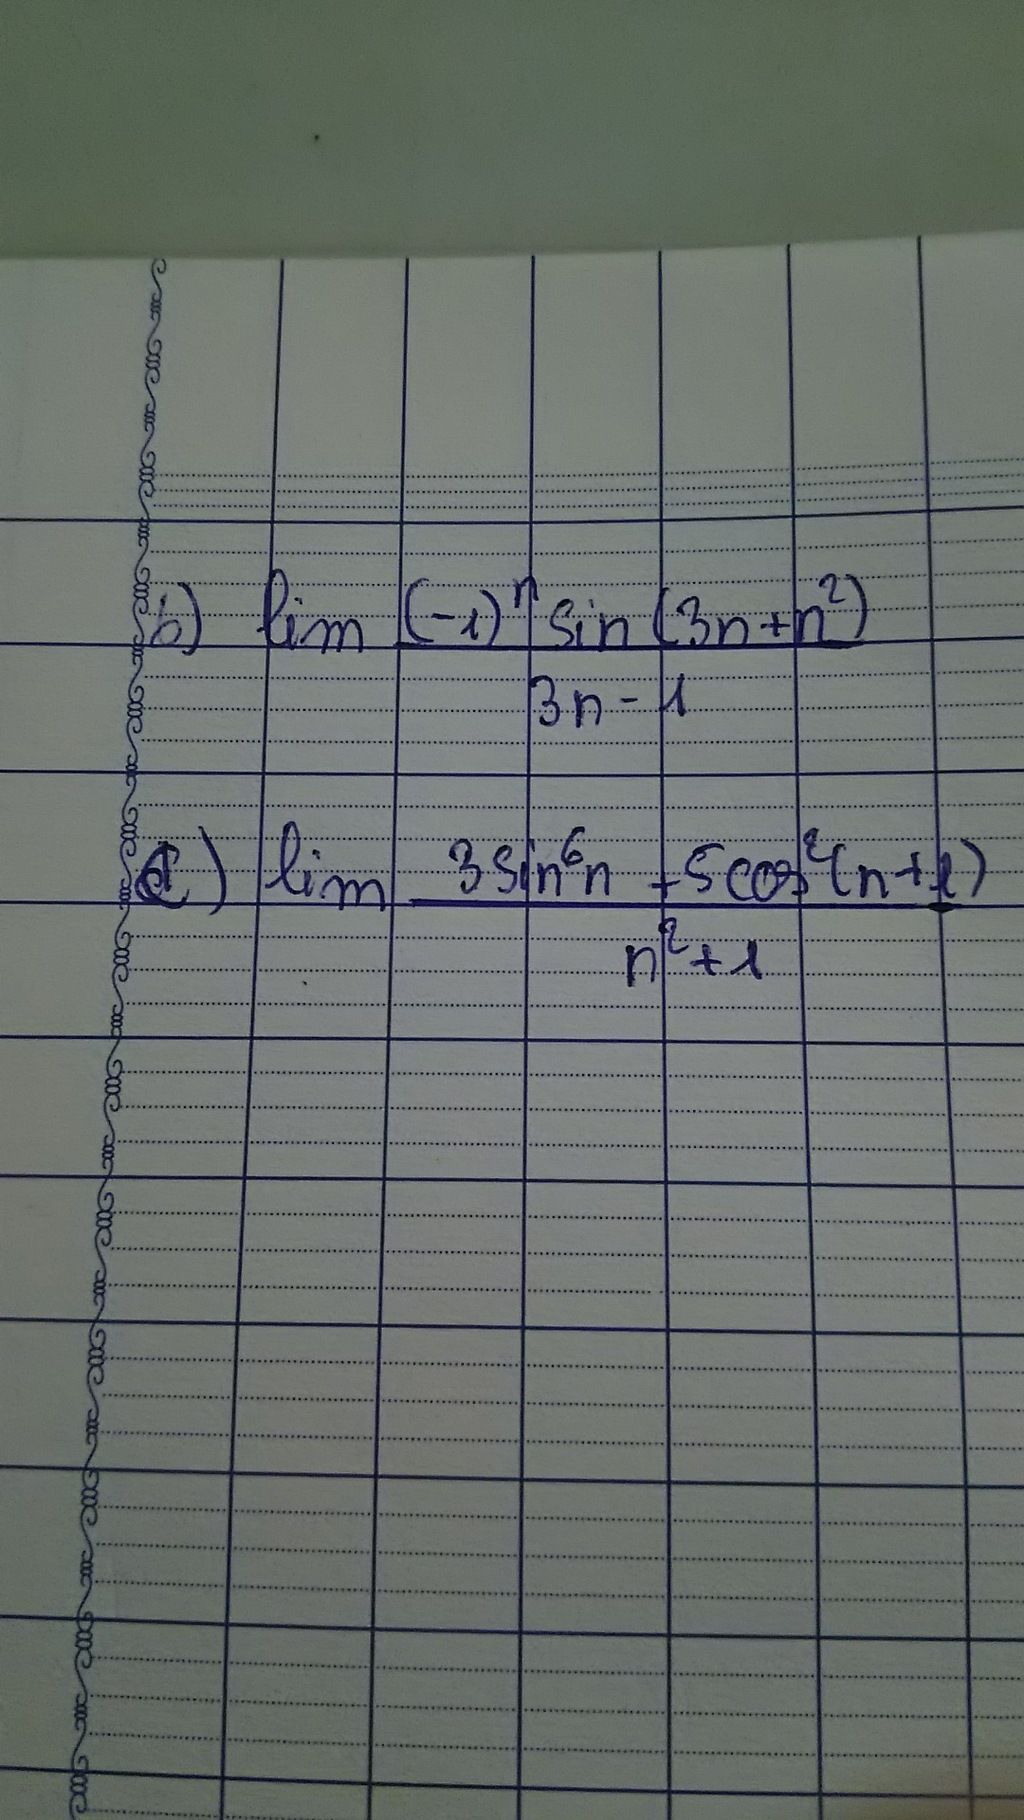 b) lim (-1)ⁿ sin (3n+n²)
3n - 1
c) lim 3 sin⁶n + 5 cos²(n+1)
n² + 1